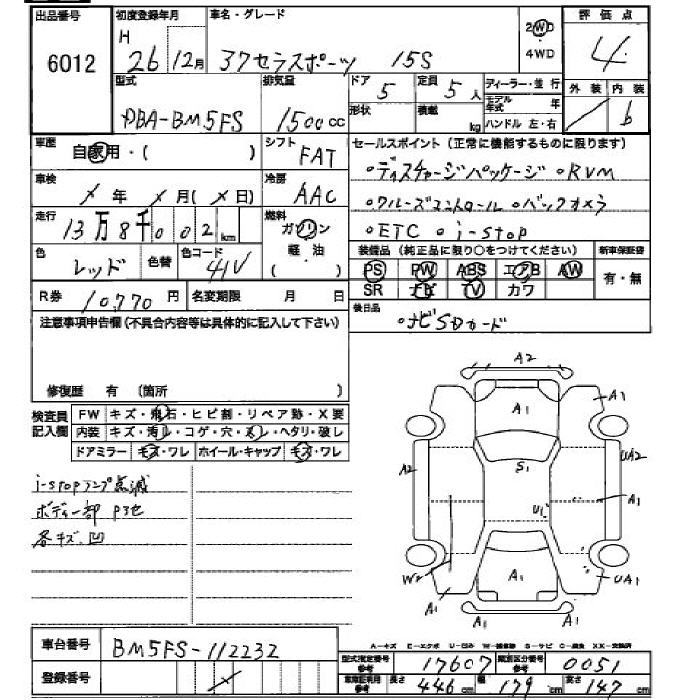 出品番号 初度登録年月 車名・グレード 2WD 評価点
6012 H 26 12月 アクセラスポーツ 15S 4WD 4
型式 排気量 ドア 5 定員 5人 ディーラー・並行 外装 内装
DBA-BM5FS 1500cc 形状 積載 kg モデル年式 年 ハンドル 左・右 b
車歴 自家用・( ) シフト FAT セールスポイント (正常に機能するものに限ります)
車検 年 月( 日) 冷房 AAC ・ディスチャージパッケージ ・RVM
走行 13万8千002km 燃料 ガソリン 軽油 ( ) ・クルーズコントロール ・バックカメラ
・ETC ・i-stop
色 レッド 色替 色コード 41V 装備品 (純正品に限り○をつけてください) 新車保証書
PS PW ABS エアB AW 有・無
R券 10,770円 名変期限 月 日 SR ナビ TV カワ
注意事項申告欄 (不具合内容等は具体的に記入して下さい) 後日品 ・ナビSDカード
修復歴 有 (箇所 )
検査員 FW キズ・飛石・ヒビ割・リペア跡・X要
記入欄 内装 キズ・汚れ・コゲ・穴・スレ・ヘタリ・破レ
ドアミラー キズ・ワレ ホイール・キャップ キズ・ワレ
i-stopランプ点滅
ボディー一部
各キズ、凹
A2
A1 A1
A2 S1 UA2
U1 A1
W2 A1 UA1
A1 A1 A1
A-キズ E-エクボ U-凹み W-補修跡 S-サビ C-腐食 XX-交換済
車台番号 BM5FS-112232
型式指定番号 参考 17607 類別区分番号 参考 0051
登録番号 車庫証明用 参考 長さ 446cm 幅 179cm 高さ 147cm